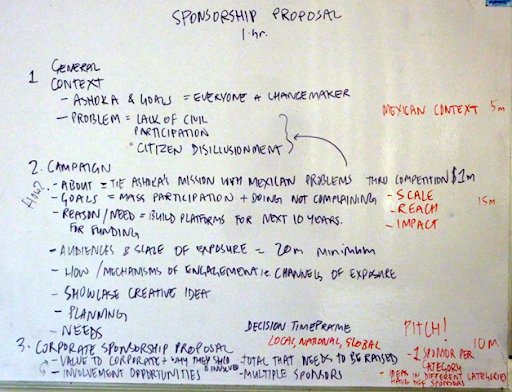 SPONSORSHIP PROPOSAL
1 hr.
1 GENERAL
CONTEXT
- ASHOKA & GOALS = EVERYONE A CHANGEMAKER
- PROBLEM = LACK OF CIVIL
PARTICIPATION
* CITIZEN DISILLUSIONMENT
MEXICAN CONTEXT 5m
2. CAMPAIGN
HOW?
- ABOUT = TIE ASHOKA'S MISSION WITH MEXICAN PROBLEMS THRU COMPETITION $1m
- GOALS = MASS PARTICIPATION + DOING NOT COMPLAINING
- REASON/NEED = BUILD PLATFORMS FOR NEXT 10 YEARS.
FOR FUNDING
- SCALE
- REACH
- IMPACT
15m
- AUDIENCES & SCALE OF EXPOSURE = 20m MINIMUM
- HOW / MECHANISMS OF ENGAGEMENT i.e. CHANNELS OF EXPOSURE
- SHOWCASE CREATIVE IDEA
- PLANNING
- NEEDS
DECISION TIMEFRAME
LOCAL, NATIONAL, GLOBAL
PITCH!
10m
3. CORPORATE SPONSORSHIP PROPOSAL
- VALUE TO CORPORATE + WHY THEY SHLD
B INVOLVED
- INVOLVEMENT OPPORTUNITIES
- TOTAL THAT NEEDS TO BE RAISED
- MULTIPLE SPONSORS
- 1 SPONSOR PER
CATEGORY
- IDEAS IN DIFFERENT CATEGORIES